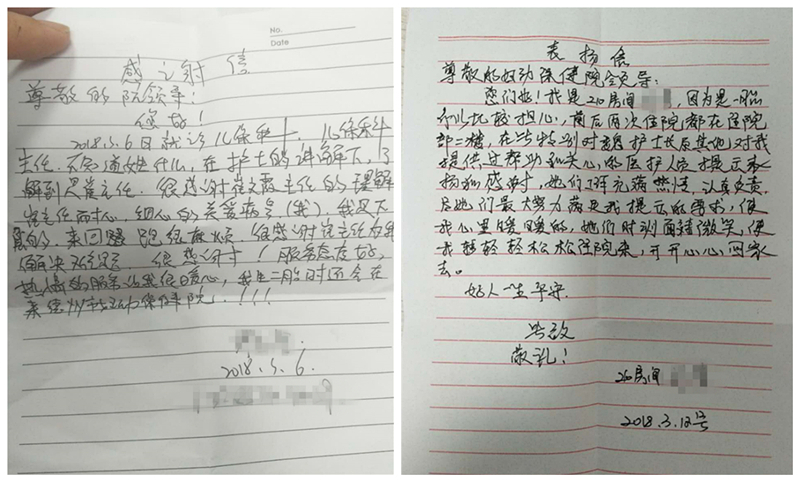 No.
Date
感谢信
尊敬的院领导：
您好！
2018.5.6日就诊儿保科，儿保科
主任.不知道姓什么，在护士的讲解下，了
解到是崔主任.很感谢崔文霞主任的理解
崔主任耐心.细心的关爱病号（我），我是下
来回路跑很麻烦.很感谢崔主任为我
解决难题 很感谢！服务态度好，
热情的服务让我很暖心，我生二胎时还会在
来德州妇幼保健院.！！！
2018.5.6.
表扬信
尊敬的妇幼保健院领导：
您们好！我是210房间，因为是一胎
有些比较担心，前后两次住院都在住院
部二楼，在此特别对魏护士长及其他对我
提供过帮助和关心的医护人员提示表
扬和感谢，她们工作充满热情，认真负责，
尽她们最大努力满足我提示的需求，使
我心里暖暖的，她们时刻面持微笑，使
我轻轻松松住院来，开开心心回家
去。
好人一生平安.
此致
敬礼！
210房间
2018.3.12号